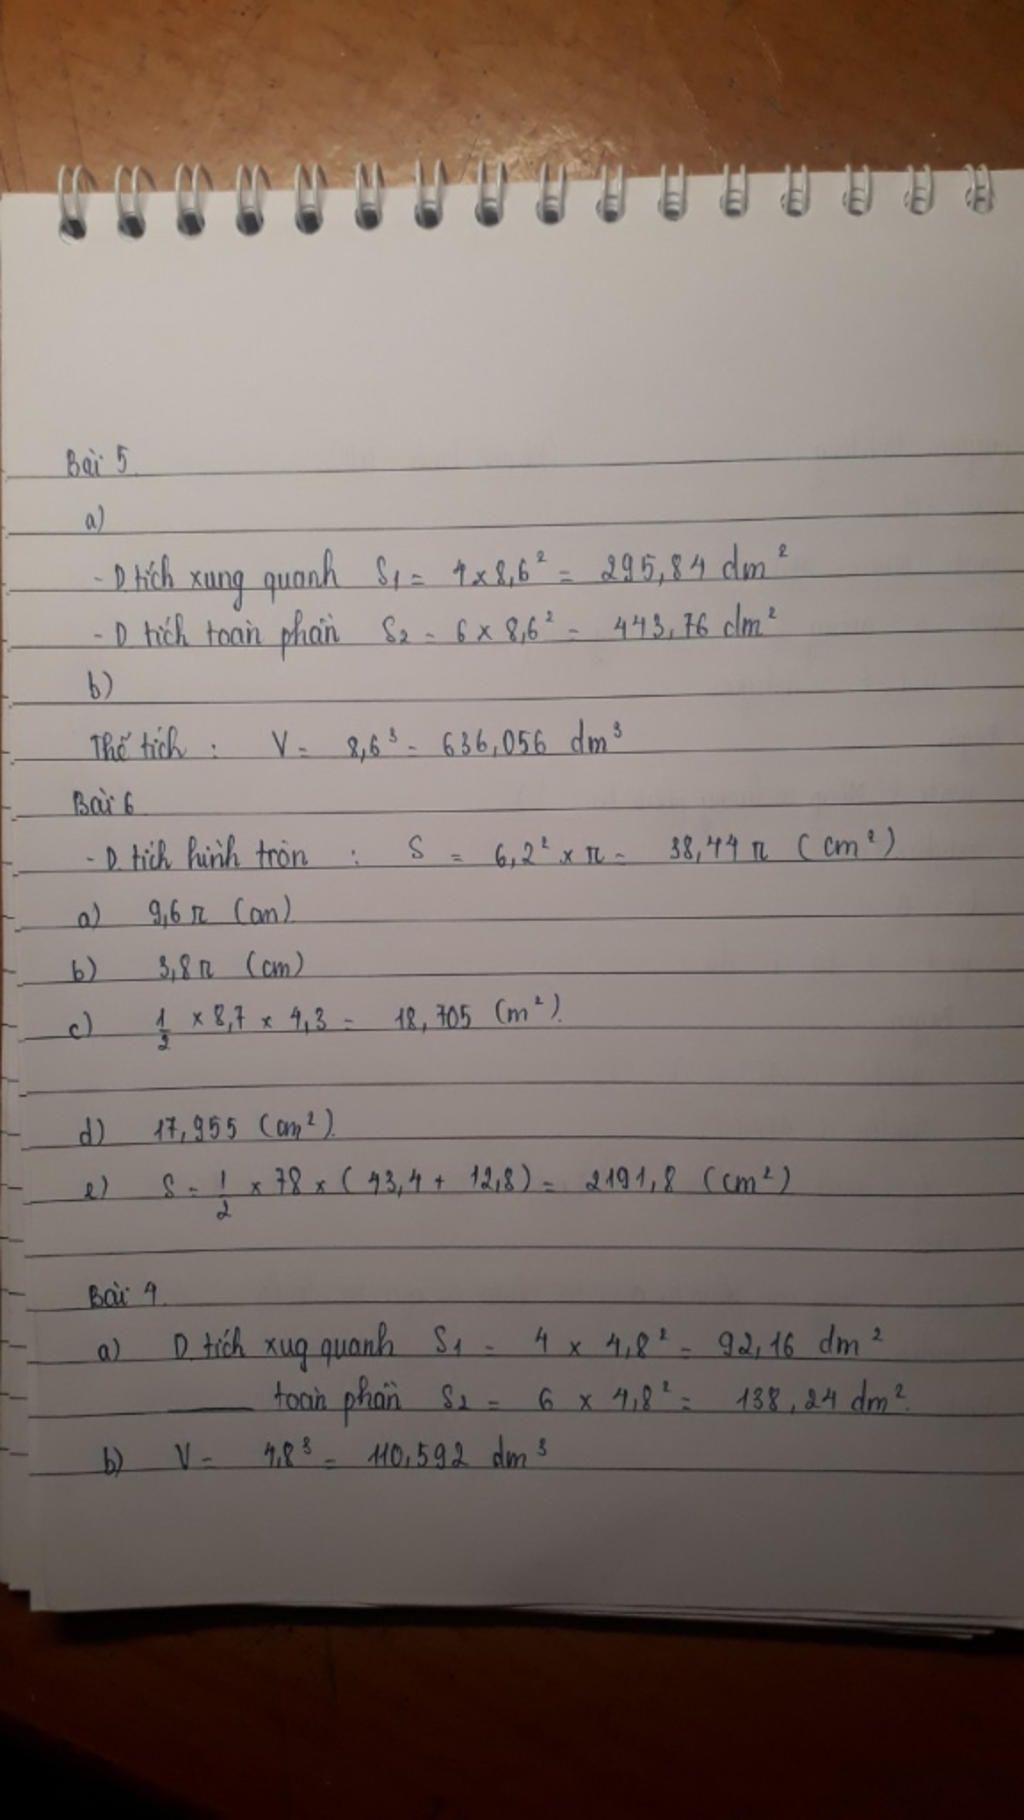 Bài 5.
a)
- D tích xung quanh S₁ = 4 x 8,6² = 295,84 dm²
- D tích toàn phần S₂ = 6 x 8,6² = 443,76 dm²
b)
Thể tích : V = 8,6³ = 636,056 dm³
Bài 6
- D. tích hình tròn : S = 6,2² x π = 38,44 π (cm²)
a) 9,6 π (cm)
b) 3,8 π (cm)
c) 1/2 x 8,7 x 4,3 = 18,705 (m²).
d) 17,955 (cm²).
e) S = 1/2 x 78 x (43,4 + 12,8) = 2191,8 (cm²)
Bài 4.
a) D tích xug quanh S₁ = 4 x 4,8² = 92,16 dm²
___ toàn phần S₂ = 6 x 4,8² = 138,24 dm².
b) V = 4,8³ = 110,592 dm³